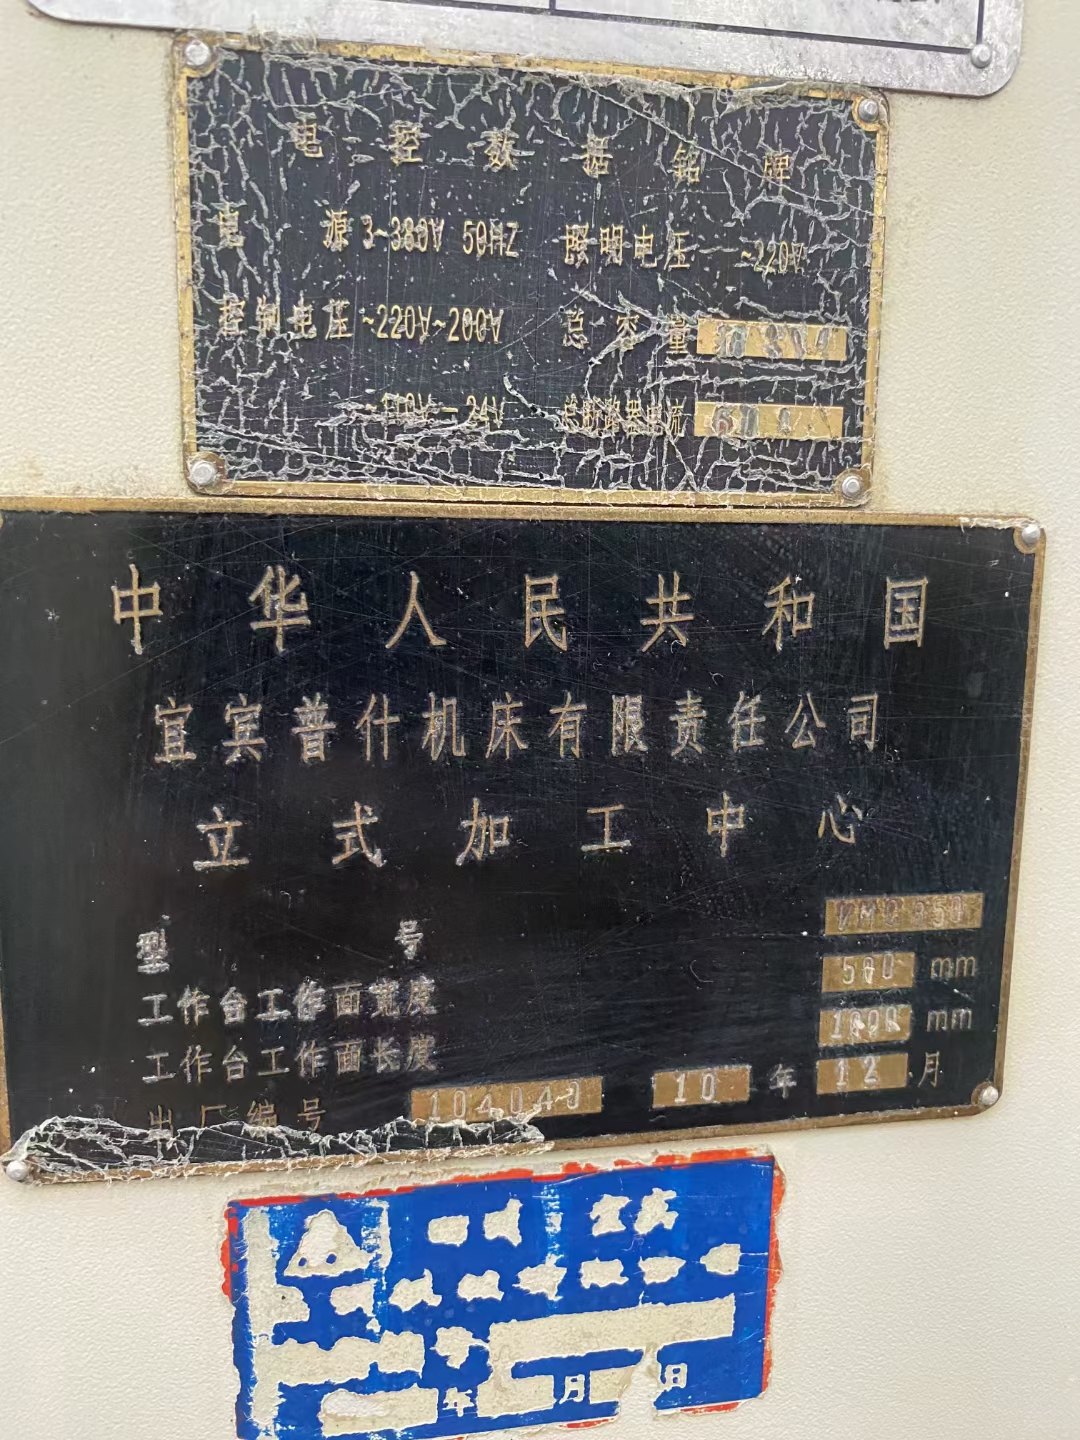 电控数据铭牌
电源 3~380V 50HZ 照明电压 ~220V
控制电压 ~220V~200V 总容量
~110V - 24V 总断路器电流
中华人民共和国
宜宾普什机床有限责任公司
立式加工中心
型号 VMC850
工作台工作面宽度 500 mm
工作台工作面长度 1000 mm
出厂编号 104040 10 年 12 月
年 月 日